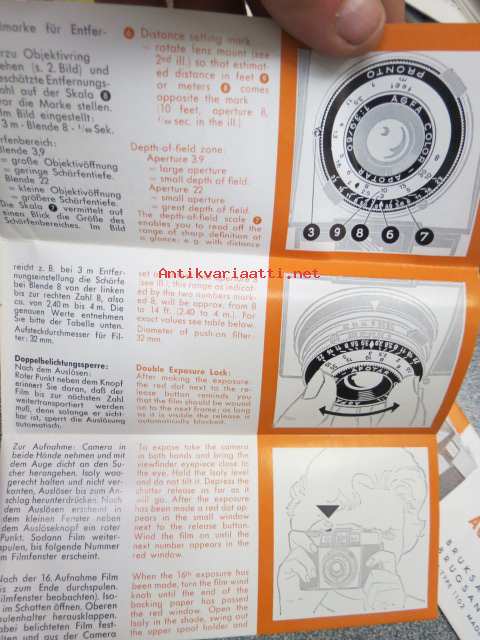 lmarke für Entfer-
rzu Objektivring
ehen (s. 2. Bild) und
eschätzte Entfernungs-
ahl auf der Skala 8
vor die Marke stellen.
Im Bild eingestellt:
3 m - Blende 8 - Sek.
rfenbereich:
lende 3,9
= große Objektivöffnung
= geringe Schärfentiefe.
Blende 22
= kleine Objektivöffnung
= größere Schärfentiefe.
Die Skala 7 vermittelt auf
einen Blick die Größe des
Schärfenbereiches. Im Bild
6 Distance setting mark
= rotate lens mount (see
2nd ill.) so that estimat-
ed distance in feet
or meters 8 comes
opposite the mark
(10 feet, aperture 8,
sec. in the ill.)
Depth-of-field zone:
Aperture 3.9
= large aperture
= small depth of field.
Aperture 22
= small aperture
= great depth of field.
The depth-of-field scale 7
enables you to read off the
range of sharp definition at
a glance, e.g. with distance
PRONTO
AGFA COLOR-APOTAR
3 9 8 6 7
Antikvariaatti.net
reicht z. B. bei 3 m Entfer-
nungseinstellung die Schärfe
bei Blende 8 von der linken
bis zur rechten Zahl 8, also
ca. von 2,40 m bis 4 m. Die
genauen Werte entnehmen
Sie bitte der Tabelle unten.
Aufsteckdurchmesser für Fil-
ter: 32 mm.
(see ill.), the range as indicat-
ed by the two numbers mark-
ed 8, will be approx. from 8
to 14 ft. (2.40 to 4 m). For
exact values see table below.
Diameter of push-on filter:
32 mm.
Doppelbelichtungssperre:
Nach dem Auslösen:
Roter Punkt neben dem Knopf
erinnert Sie daran, daß der
Film bis zur nächsten Zahl
weitertransportiert werden
muß, denn solange er sicht-
bar ist, sperrt die Auslösung
automatisch.
Double Exposure Lock:
After making the exposure:
the red dot next to the re-
lease button reminds you
that the film should be wound
on to the next frame; as long
as it is visible the release is
automatically blocked.
Zur Aufnahme: Camera in
beide Hände nehmen und mit
dem Auge dicht an den Su-
cher herangehen. Isoly waa-
gerecht halten und nicht ver-
kanten, Auslöser bis zum An-
schlag herunterdrücken. Nach
dem Auslösen erscheint in
dem kleinen Fenster neben
dem Auslöseknopf ein roter
Punkt. Sodann Film weiter-
spulen, bis folgende Nummer
im Filmfenster erscheint.
To expose take the camera
in both hands and bring the
viewfinder eyepiece close to
the eye. Hold the Isoly level
and do not tilt it. Depress the
shutter release as far as it
will go. After the exposure
has been made a red dot ap-
pears in the small window
next to the release button.
Wind the film on until the
next number appears in the
red window.
Nach der 16. Aufnahme Film
bis zum Ende durchspulen.
(Filmfenster beobachten). Iso-
im Schatten öffnen. Oberen
pulenhalter herausklappen.
abei belichteten Film fest-
alten und aus der Camera
When the 16th exposure has
been made, turn the film wind
knob until the end of the
backing paper has passed
the red window. Open the
Isoly in the shade, swing out
the upper spool holder and
BRUKS
BRUGSAN
TYPE 1102 MADE